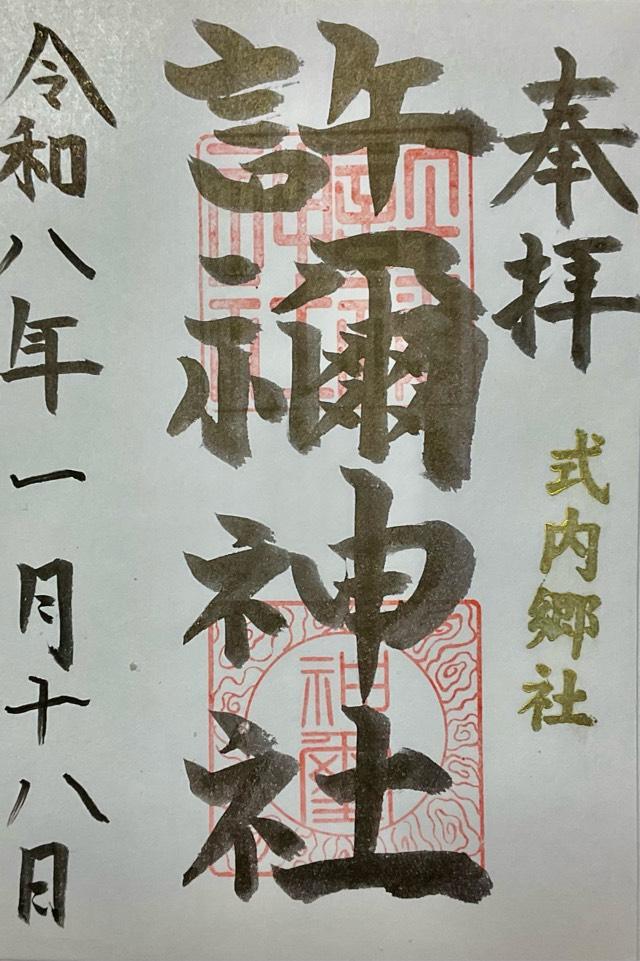 奉拝
式内郷社
許禰神社
令和八年一月十八日